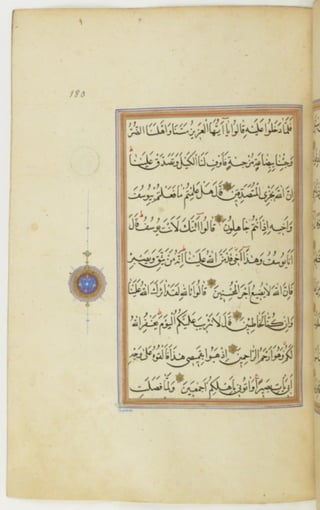 فَلَمَّا دَخَلُوا عَلَيْهِ قَالُوا يَا أَيُّهَا الْعَزِيزُ مَسَّنَا وَأَهْلَنَا الضُّرُّ
وَجِئْنَا بِبِضَاعَةٍ مُزْجَاةٍ فَأَوْفِ لَنَا الْكَيْلَ وَتَصَدَّقْ عَلَيْنَا
إِنَّ اللَّهَ يَجْزِي الْمُتَصَدِّقِينَ قَالَ هَلْ عَلِمْتُمْ مَا فَعَلْتُمْ بِيُوسُفَ
وَأَخِيهِ إِذْ أَنْتُمْ جَاهِلُونَ قَالُوا أَئِنَّكَ لَأَنْتَ يُوسُفُ قَالَ
أَنَا يُوسُفُ وَهَذَا أَخِي قَدْ مَنَّ اللَّهُ عَلَيْنَا إِنَّهُ مَنْ يَتَّقِ وَيَصْبِرْ
فَإِنَّ اللَّهَ لَا يُضِيعُ أَجْرَ الْمُحْسِنِينَ قَالُوا تَاللَّهِ لَقَدْ آثَرَكَ اللَّهُ عَلَيْنَا
وَإِنْ كُنَّا لَخَاطِئِينَ قَالَ لَا تَثْرِيبَ عَلَيْكُمُ الْيَوْمَ يَغْفِرُ اللَّهُ
لَكُمْ وَهُوَ أَرْحَمُ الرَّاحِمِينَ اذْهَبُوا بِقَمِيصِي هَذَا فَأَلْقُوهُ عَلَى وَجْهِ
أَبِي يَأْتِ بَصِيرًا وَأْتُونِي بِأَهْلِكُمْ أَجْمَعِينَ وَلَمَّا فَصَلَتِ